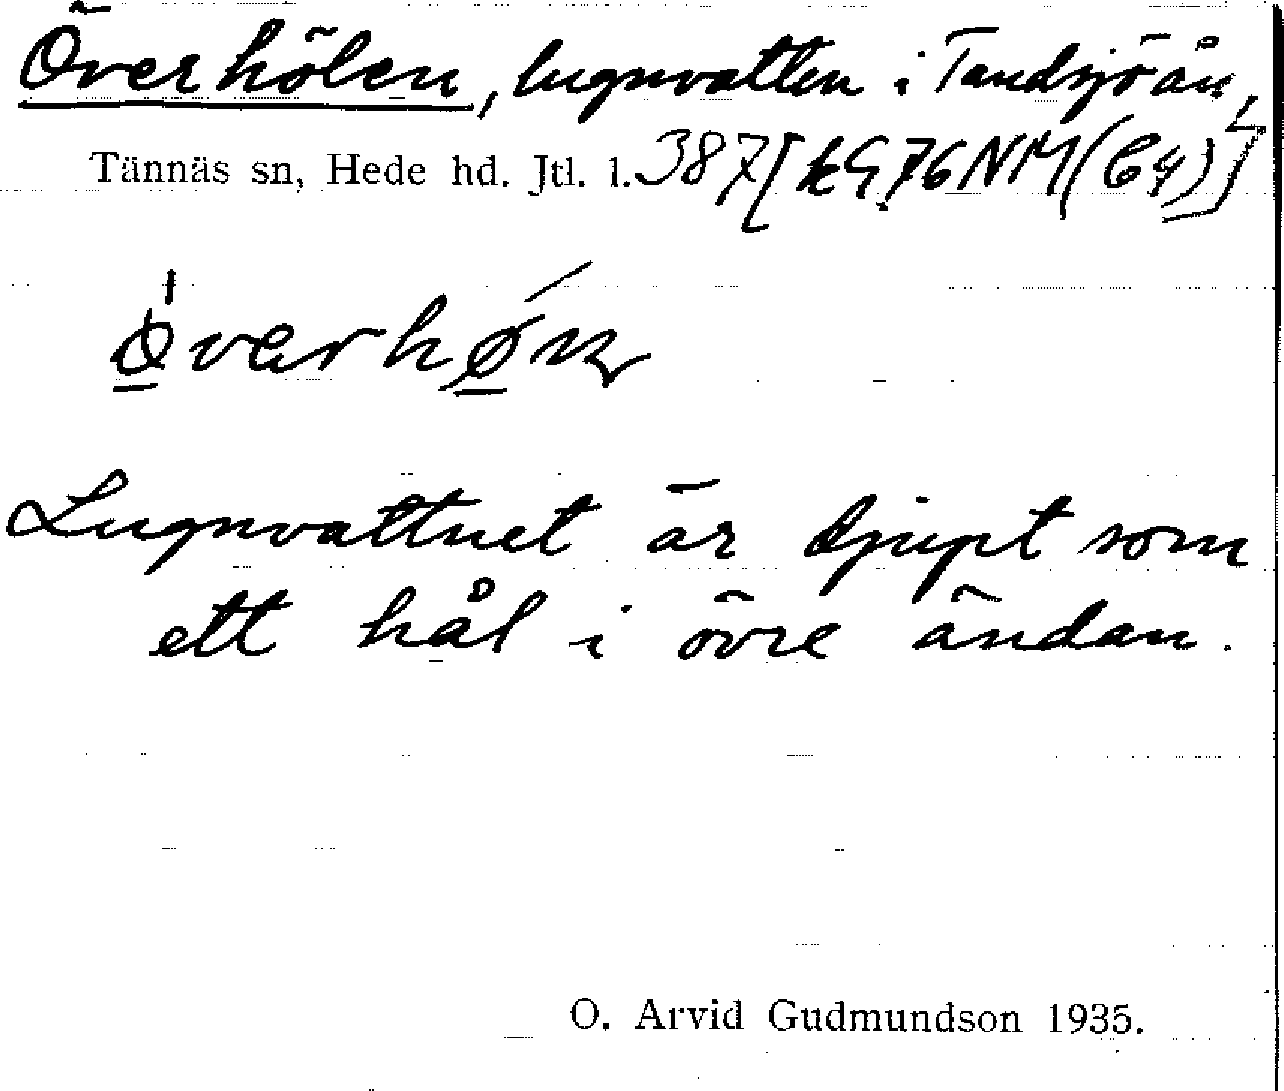 Överhölen, lugnvatten i Tandsjöån,
Tännäs sn, Hede hd. Jtl. l. 387 [kG 76 NM (C4)]
Lugnvattnet är djupt som
ett hål i övre ändan.
O. Arvid Gudmundson 1935.